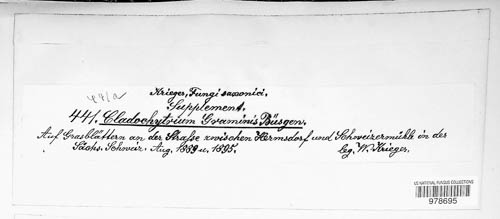 441a
Krieger, Fungi saxonici.
Supplement.
441. Cladochytrium Graminis Büsgen.
Auf Grasblättern an der Strafse zwischen Hermsdorf und Schweizermühle in der
Sächs. Schweiz. Aug. 1889 u. 1895. leg. W. Krieger.
US NATIONAL FUNGUS COLLECTIONS
978695